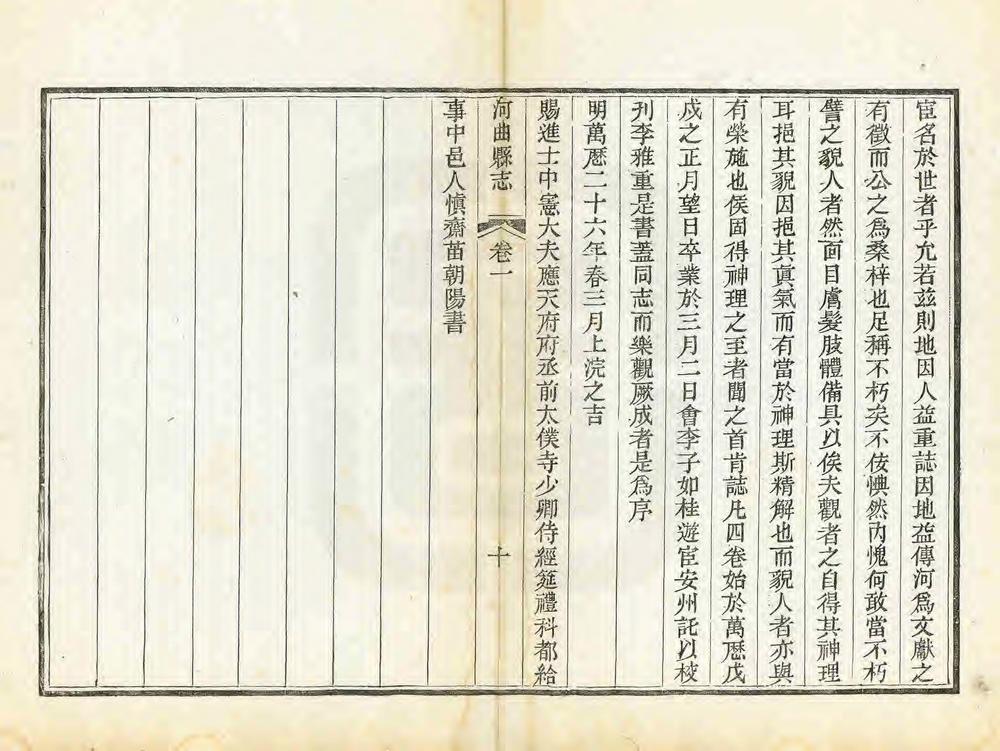 宦名於世者乎允若茲則地因人益重誌因地益傳河爲文獻之
有徵而公之爲桑梓也足稱不朽矣不佞惧然內愧何敢當不朽
譬之貌人者然面目膚髮肢體備具以俟夫觀者之自得其神理
耳挹其貌因挹其眞氣而有當於神理斯精解也而貌人者亦與
有榮施也侯固得神理之至者聞之首肯誌凡四卷始於萬歷戊
戍之正月望日卒業於三月二日會李子如桂遊宦安州託以校
刋李雅重是書蓋同志而樂觀厥成者是爲序
明萬歷二十六年春三月上浣之吉
賜進士中憲大夫應天府府丞前太僕寺少卿侍經筵禮科都給
河曲縣志 卷一 十
事中邑人愼齋苗朝陽書